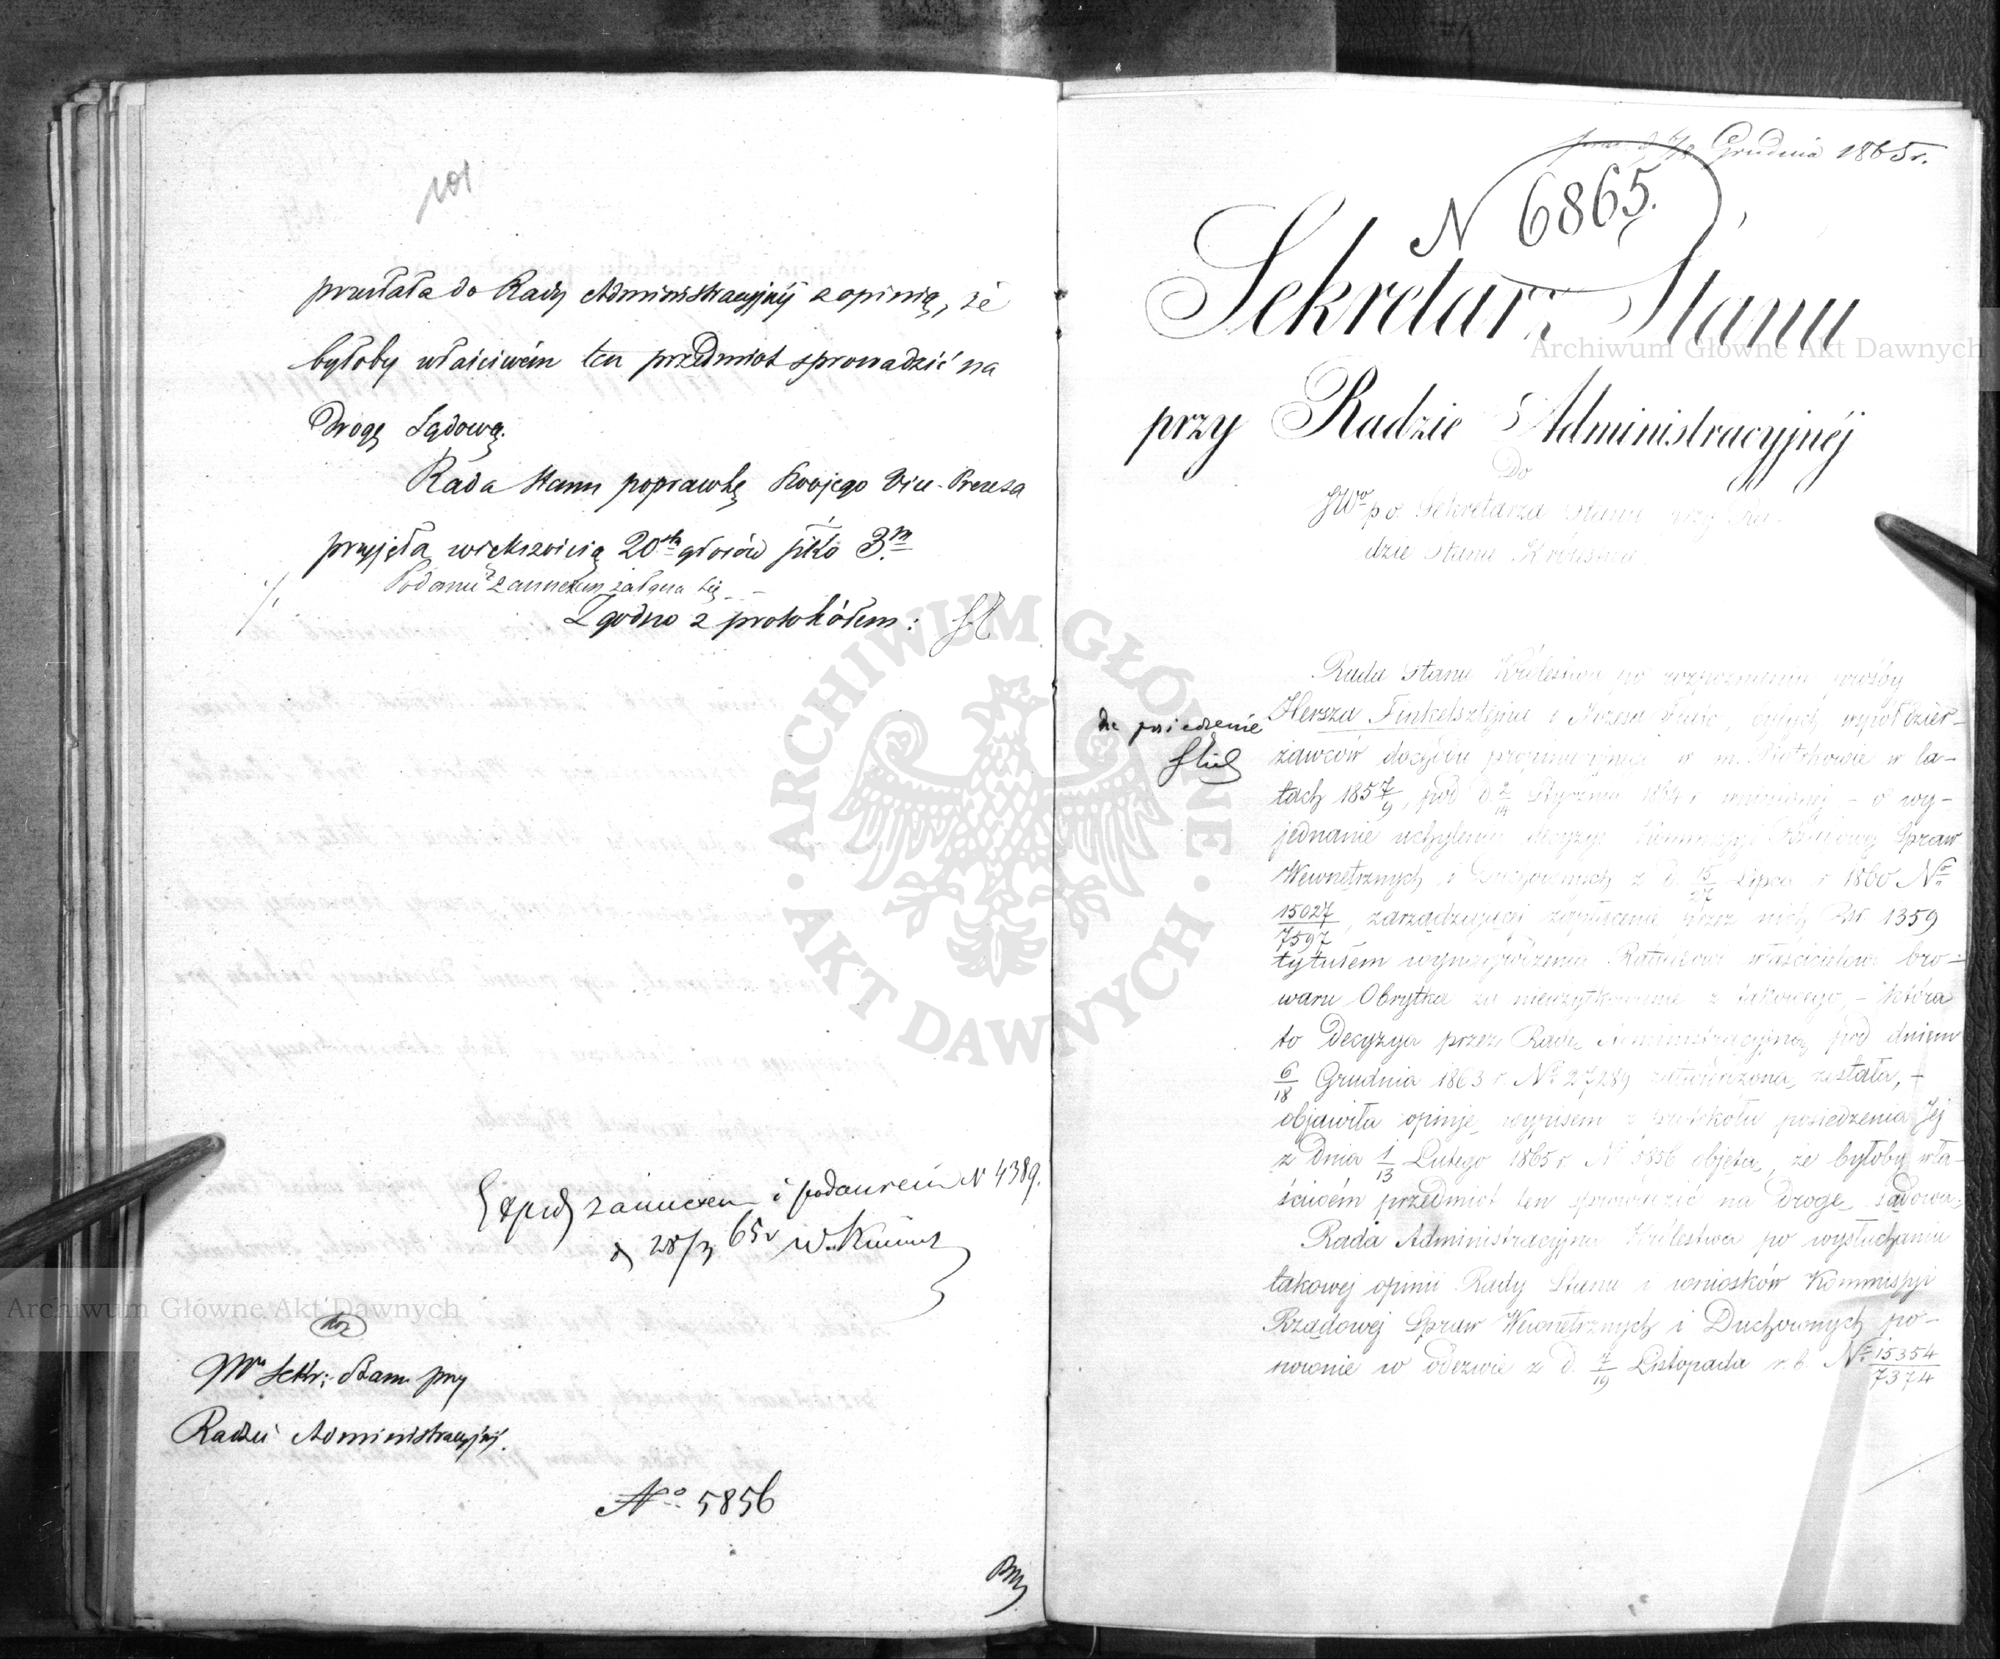 101
przesłała do Rady Administracyjnéj z opinią, że
byłoby właściwém ten przedmiot sprowadzić na
drogę Sądową.
Rada Stanu poprawkę Swojego Vice-Prezesa
przyjęła większością 20stu głosów p-ko 3m
Podanie z annexem załącza się
Zgodno z protokółem:
Exped z annexem i podaniem N 4389.
d 28/3 65r
do
JW Sekr: Stanu przy
Radzie Administracyjnéj.
No 5856
Grudnia 1865 r.
N 6865.
Sekretarz Stanu
przy Radzie Administracyjnéj
Do
JWo p.o. Sekretarza Stanu przy Ra-
dzie Stanu Królestwa
na posiedzenie
Rada Stanu Królestwa po rozpoznaniu prośby
Hersza Finkelsztejna i, byłych współdzier-
żawców dochodu propinacyjnego w m. Piotrkowie w la-
tach 1857/9, pod d. 2/14 Stycznia 1864 r. wniesionej – o wy-
jednanie uchylenia decyzyi Kommissyi Rządowej Spraw
Wewnętrznych i Duchownych z d. 15/27 Lipca r 1860 No
15027/7597, zarządzającej zapłacenie przez nich Rsr. 1359
tytułem wynagrodzenia właścicielowi bro-
waru Obrytka za nieużytkowanie z takowego, – która
to Decyzya przez Radę Administracyjną pod dniem
6/18 Grudnia 1863 r. No 27289 zatwierdzona została, –
objawiła opinję, wypisem z protokółu posiedzenia Jej
z dnia 1/13 Lutego 1865 r. No 5856 objętą, że byłoby wła-
ściwém przedmiot ten sprowadzić na drogę sądową.
Rada Administracyjna Królestwa po wysłuchaniu
takowej opinii Rady Stanu i wniosków Kommissyi
Rządowej Spraw Wewnętrznych i Duchownych po-
nownie w odezwie z d. 7/19 Listopada r. b. No 15354/7374
Archiwum Główne Akt Dawnych
ARCHIWUM GŁÓWNE · AKT DAWNYCH ·
Archiwum Główne Akt Dawnych